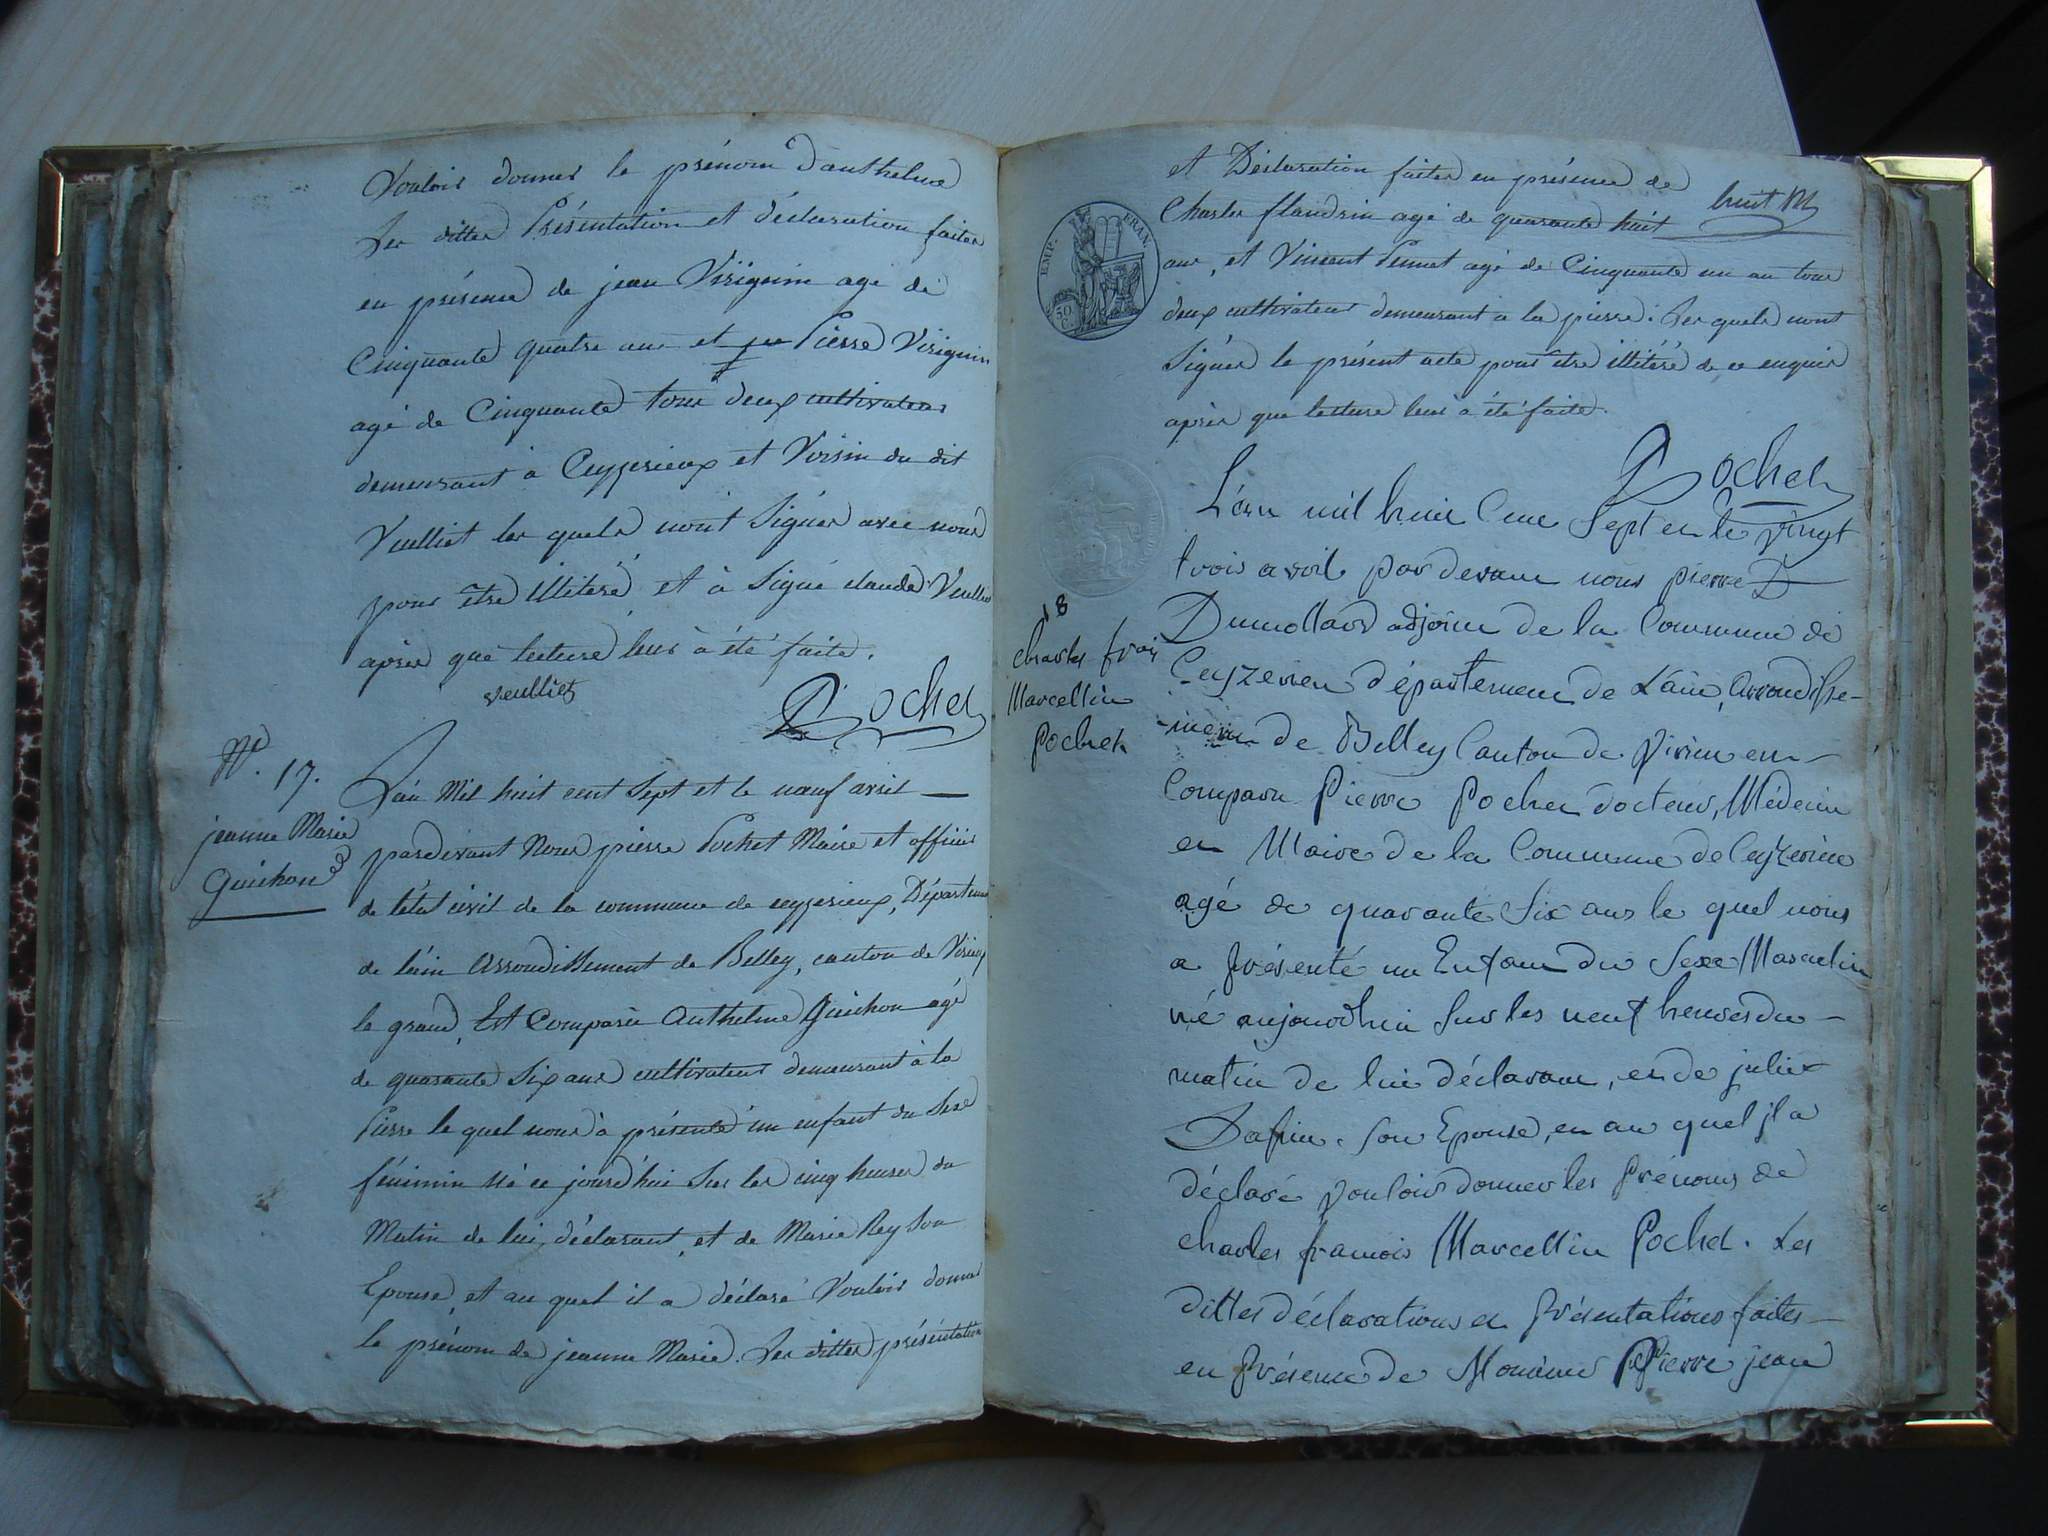 Vouloir donner le prénom d'anthelme
Les dittes Présentation et déclaration faites
en présence de jean Viriguin agé de
Cinquante quatre ans et Pierre Viriguin
agé de Cinquante tous deux cultivateurs
demeurant à Ceyzerieux et Voisin du dit
Veulliet les quels n'ont Signés avec nous
pour être illitéré, et à Signé claude Veulliet
après que lecture leur à été faite.
veulliet
Pochet
N°. 17.
jeanne Marie
Guichon
L'an Mil huit cent Sept et le neuf avril
pardevant Nous pierre Pochet Maire et officier
de l'état civil de la commune de ceyzerieux, Département
de l'ain Arrondissement de Belley, canton de Virieux
le grand, Est Comparu Anthelme Guichon agé
de quarante Six ans cultivateur demeurant à la
Pierre le quel nous à présenté un enfant du Sexe
féminin Né ce jourd'hui Sur les cinq heures du
Matin de lui, déclarant, et de Marie Rey Son
Epouse, et au quel il a déclaré Vouloir donner
le prénom de jeanne Marie. Les dittes présentation
et Déclaration faites en présence de
huit
Charles flandrin agé de quarante huit
EMP. FRAN.
50 C.
ans, et Vincent agé de Cinquante un an tous
deux cultivateurs demeurant a la pierre. Les quels n'ont
Signés le présent acte pour être illitéré de ce enquis
après que lecture leur à été faite.
Pochet
L'an mil huit Cent Sept et le vingt
trois avril par devant nous pierre
Dumollard adjoint de la Commune de
Ceyzerieu département de L'ain, arrondisse-
-ment de Belley Canton de Virieu
18
charles frois
Marcellin
Pochet
Comparu Pierre Pochet docteur, Médecin
et Maire de la Commune de Ceyzerieu
agé de quarante Six ans le quel nous
a présenté un Enfant du Sexe Masculin
né aujourdhui Sur les neuf heures du
matin de lui déclarant, et de julie
Dafin Son Epouse, et au quel jl a
déclaré vouloir donner les prénoms de
charles francois Marcellin Pochet. Les
dittes déclarations et Présentations faites
en présence de Monsieur Pierre jean